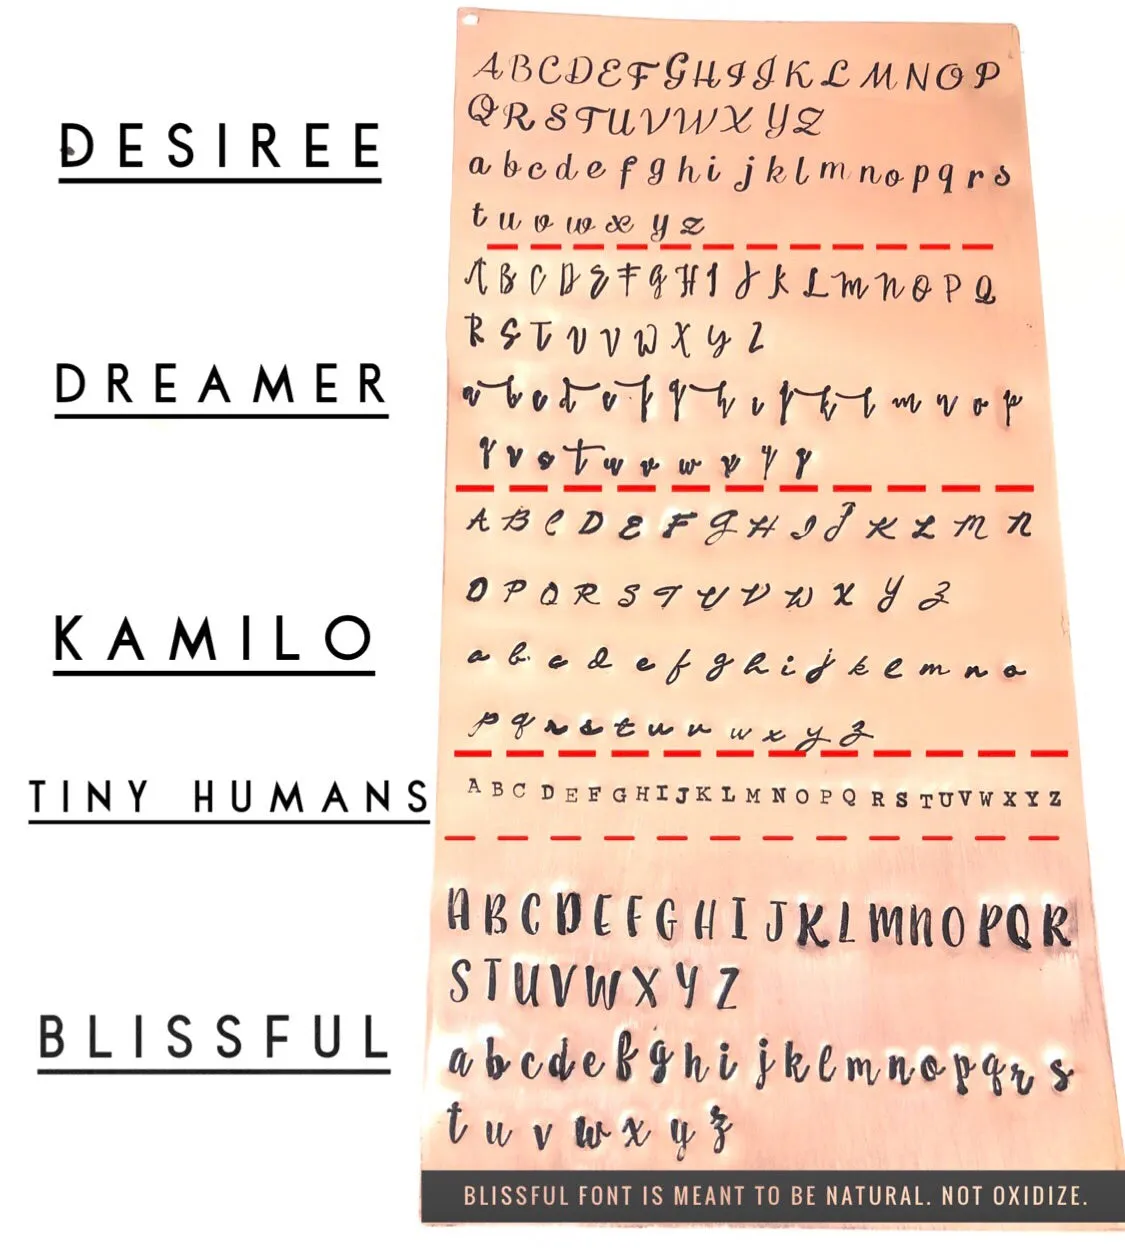 DESIREE
ABCDEFGHIJKLMNOP
QRSTUVWXYZ
abcdefghijklmnopqrs
tuvwxyz
DREAMER
ABCDEFGHIJKLMNOPQ
RSTUVWXYZ
abcdefghijklmnop
qrstuvwxyz
KAMILO
ABCDEFGHIJKLMN
OPQRSTUVWXYZ
abcdefghijklmno
pqrstuvwxyz
TINY HUMANS
ABCDEFGHIJKLMNOPQRSTUVWXYZ
BLISSFUL
ABCDEFGHIJKLMNOPQR
STUVWXYZ
abcdefghijklmnopqrs
tuvwxyz
BLISSFUL FONT IS MEANT TO BE NATURAL. NOT OXIDIZE.